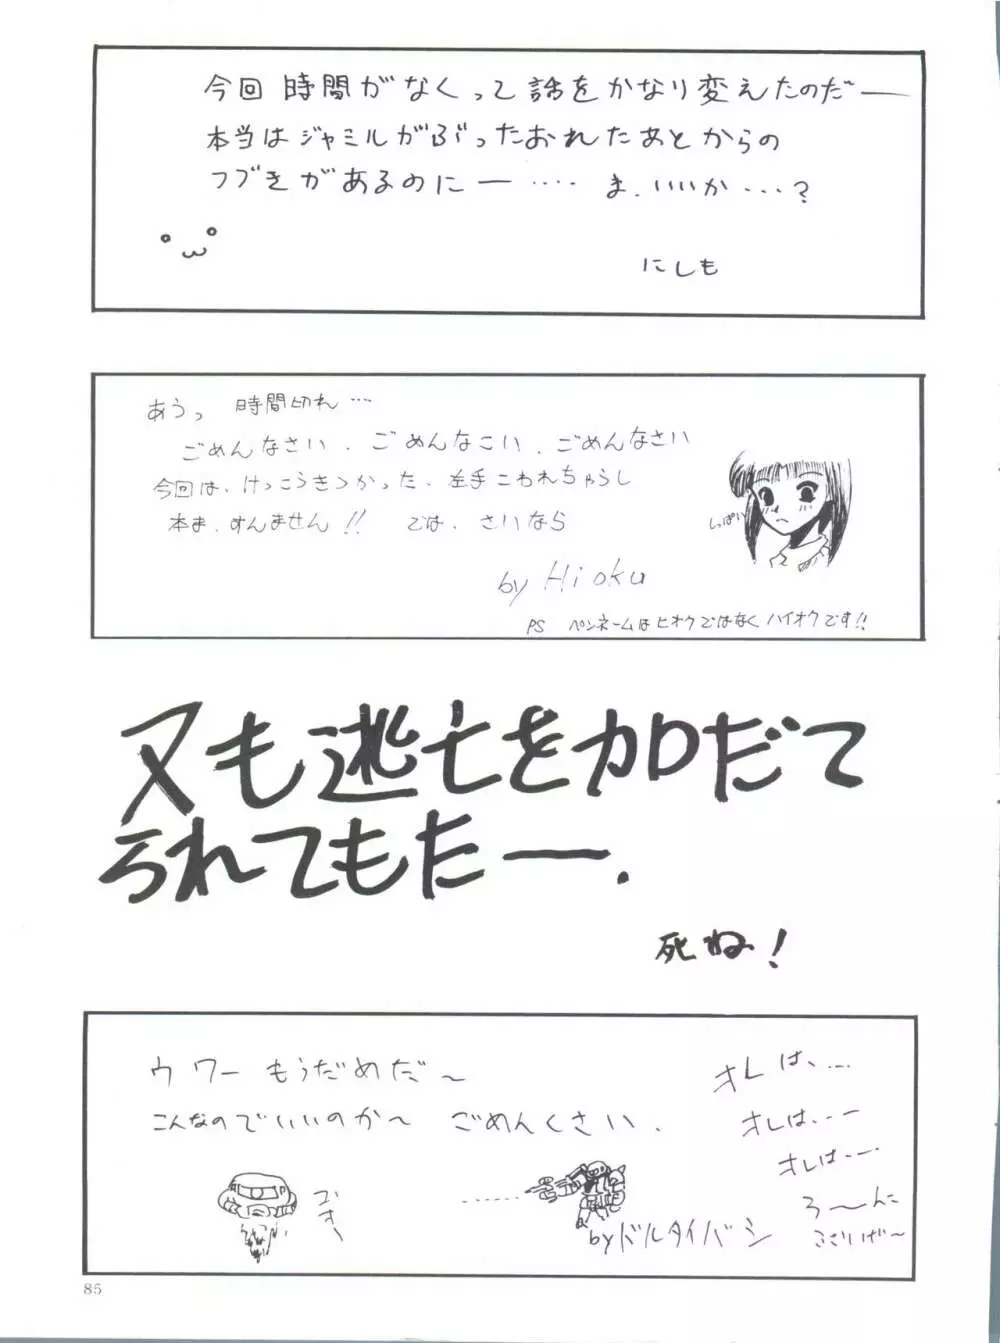 今回 時間がなくって話をかなり変えたのだー
本当はジャミルがぶったおれたあとからの
つづきがあるのにー‥‥ ま、いいか…?
にしも
あうっ 時間切れ…
ごめんなさい、ごめんなこい、ごめんなさい
今回は、けっこうきつかった、左手こわれちゃうし
本ま、すんません!! では、さいなら
しっぱい
by Hioku
PS ペンネームはヒオクではなくハイオクです!!
又も逃亡をカロだて
られてもたー.
死ね!
ウワー もうだめだ〜
こんなのでいいのか〜 ごめんくさい.
オレは、…
オレは、--
オレは--
ろ〜んに
by ドルタイバシ
85